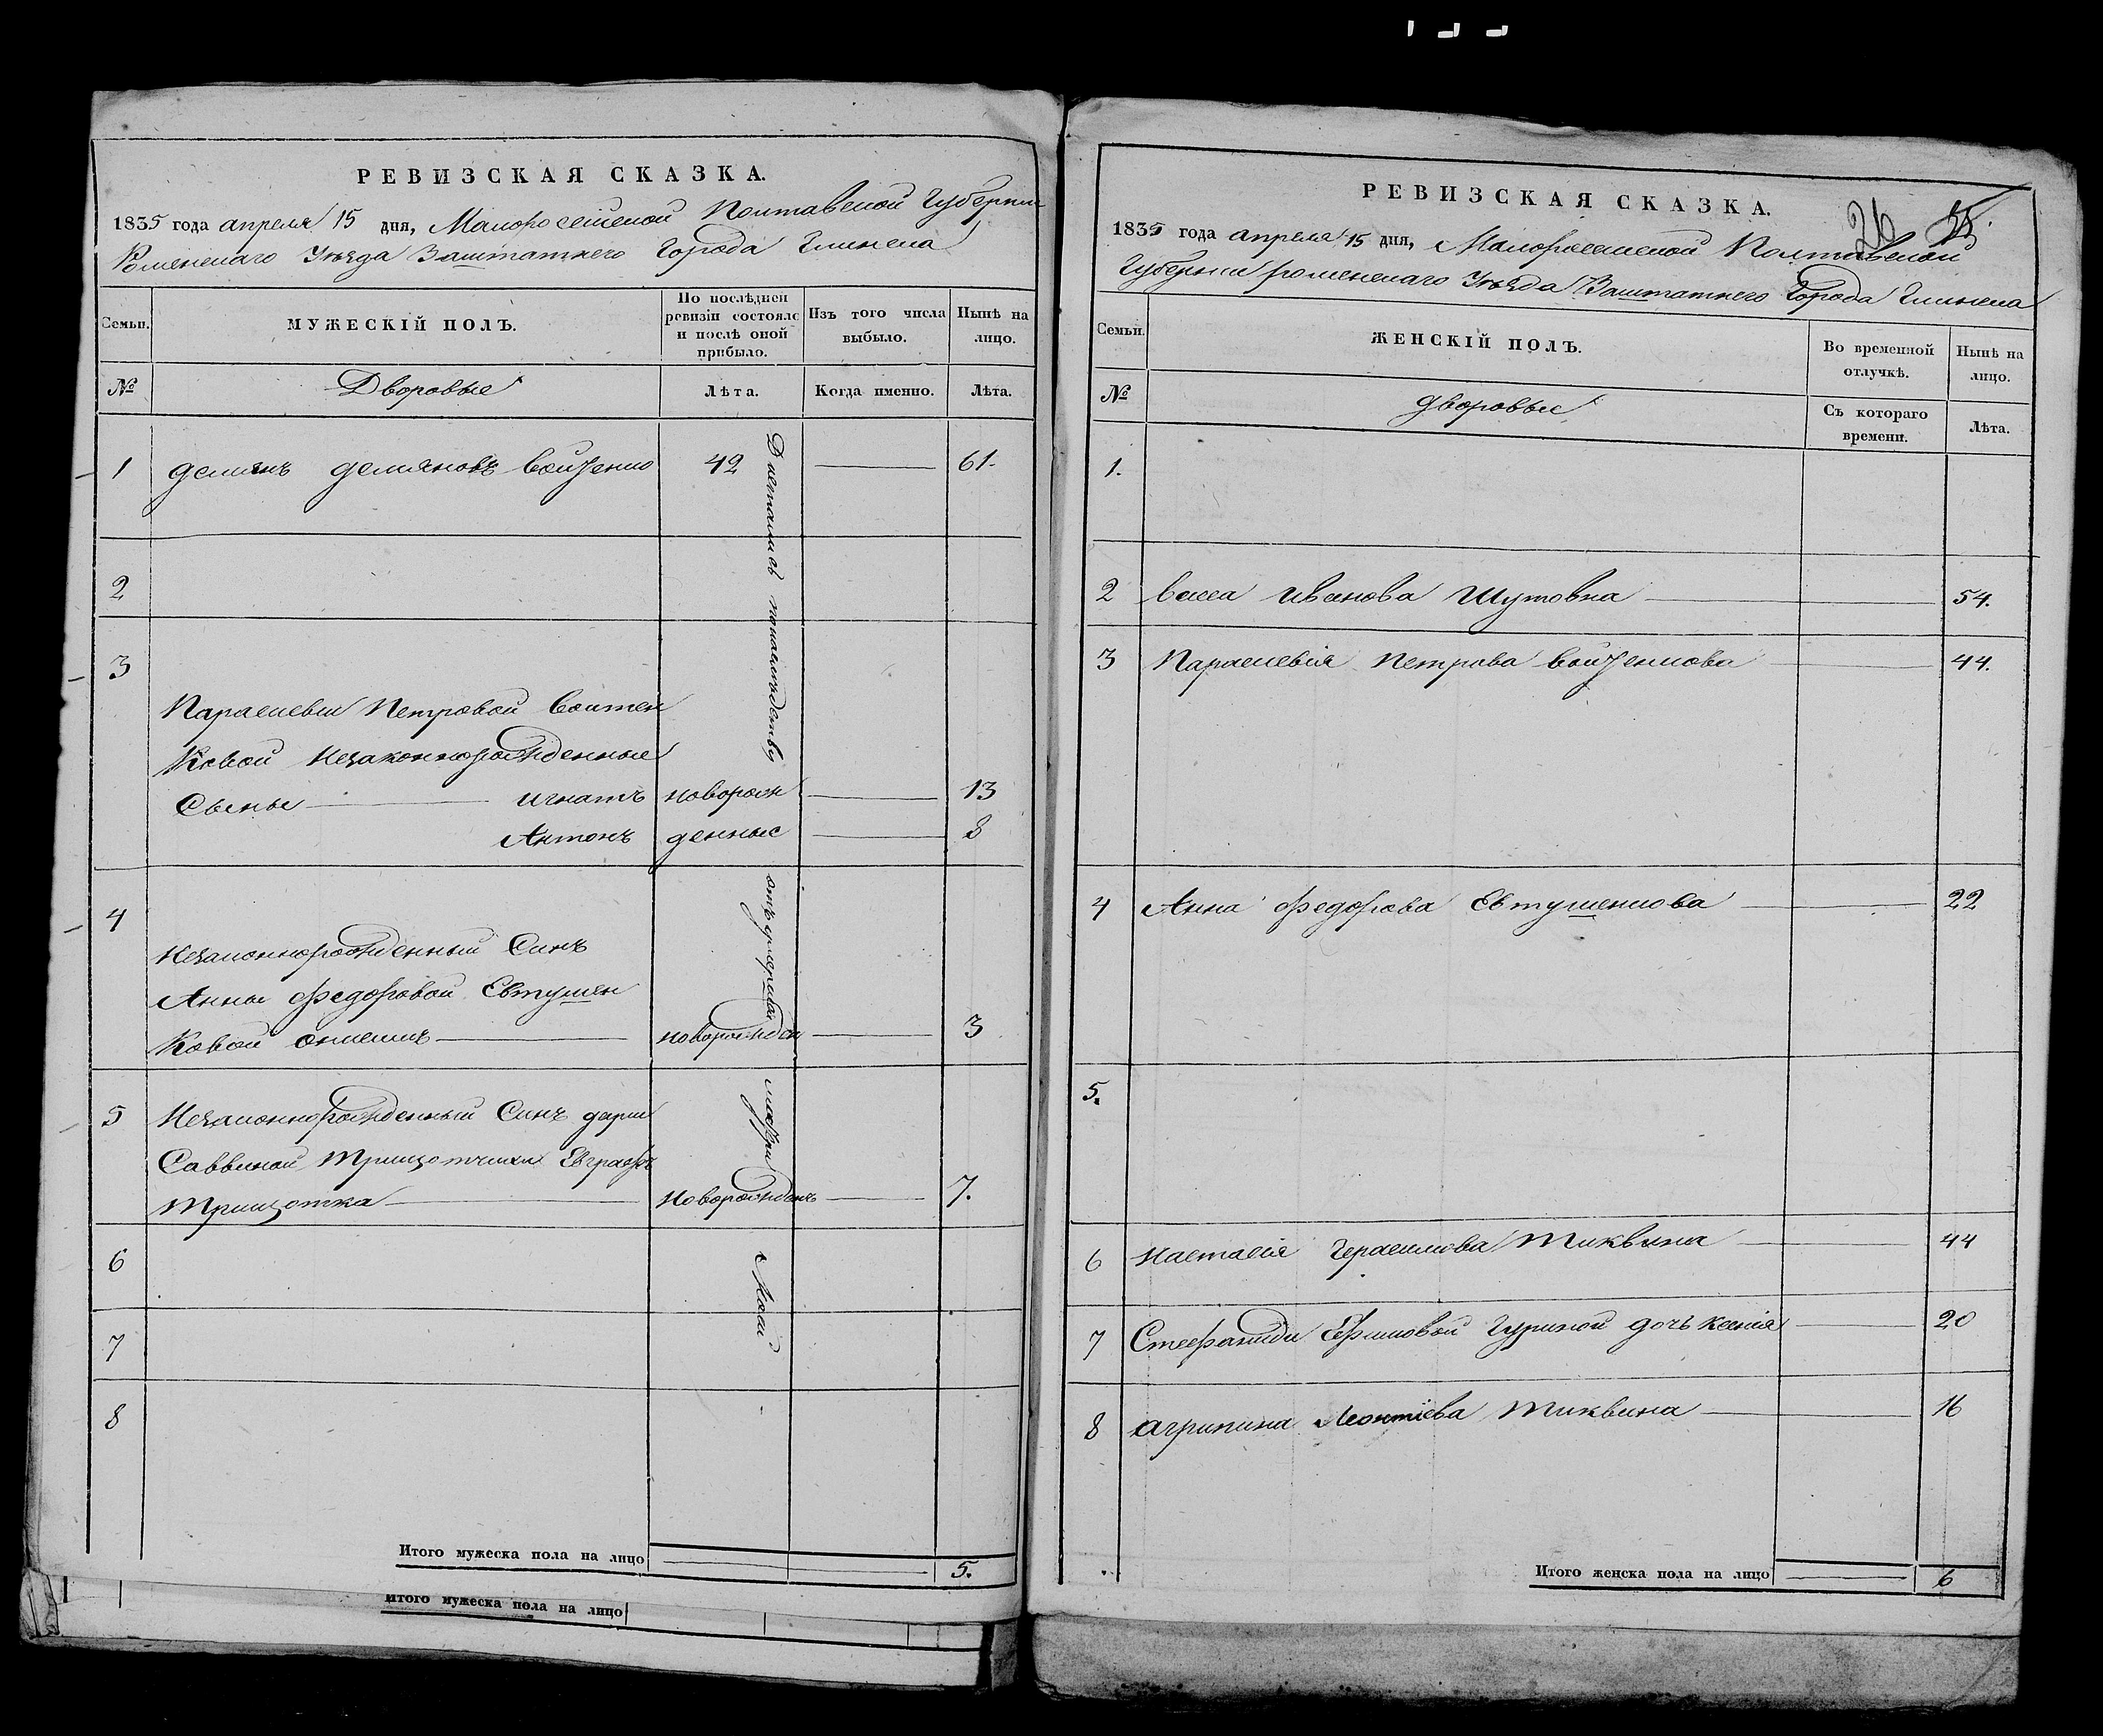 РЕВИЗСКАЯ СКАЗКА.
1835 года апреля 15 дня, Малоросейской Полтавской Губернии
Роменскаго Уезда Заштатнего Города Глинска
Семьи.
МУЖЕСКІЙ ПОЛЪ.
По послѣдней ревизіи состояло и послѣ оной прибыло.
Изъ того числа выбыло.
Нынѣ на лицо.
№
Дворовые
Лѣта.
Когда именно.
Лѣта.
1 демянъ демяновъ войтенко 42 61.
2
3
Параскевіи Петровой Войтен
Ковой Незаконнорожденные
Сыны игнатъ новорож 13
Антонъ денные 8
4
Незаконнорожденный Синъ
Анны Федоровой Евтушен
Ковой онисимъ новорожден 3
5 Незаконнорожденный Синъ дарии
Саввиной Трищотчихи Евграфъ
Трищотка новорожденъ 7.
6
7
8
Досталися по наследству
от умершей
матери
моей
Итого мужеска пола на лицо 5.
итого мужеска пола на лицо
РЕВИЗСКАЯ СКАЗКА.
26 55.
1835 года апреля 15 дня, Малоросейской Полтавской
Губернии роменскаго Уезда Заштатнего Города Глинска
Семьи.
ЖЕНСКІЙ ПОЛЪ.
Во временной отлучкѣ.
Нынѣ на лицо.
№
дворовые
Съ котораго времени.
Лѣта.
1.
2 васса Иванова Шутовна 54.
3 Параскевія Петрова войтенкова 44.
4 Анна Федорова Евтушенкова 22
5.
6 Настасія Герасимова Тиквина 44
7 Стефаниди Ефимовой Гуриной дочь Ксенія 20
8 агрипина Леонтіева Тиквина 16
Итого женска пола на лицо 6